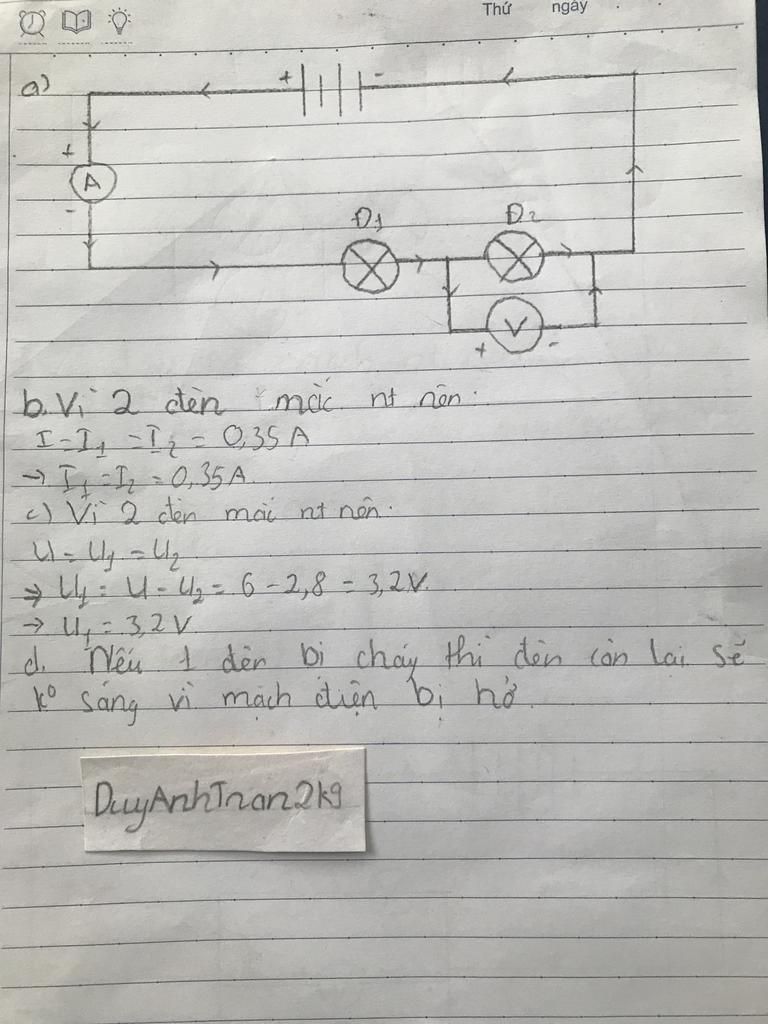 Thứ ngày
a)
+ -
+
A
-
Đ1 Đ2
V
+ -
b. Vì 2 đèn mắc nt nên:
I = I1 = I2 = 0,35 A
→ I1 = I2 = 0,35 A.
c) Vì 2 đèn mắc nt nên:
U = U1 = U2
⇒ U1 = U - U2 = 6 - 2,8 = 3,2 V.
→ U1 = 3,2 V
d. Nếu 1 đèn bị cháy thì đèn còn lại sẽ
k° sáng vì mạch điện bị hở.
DuyAnhTran2k9